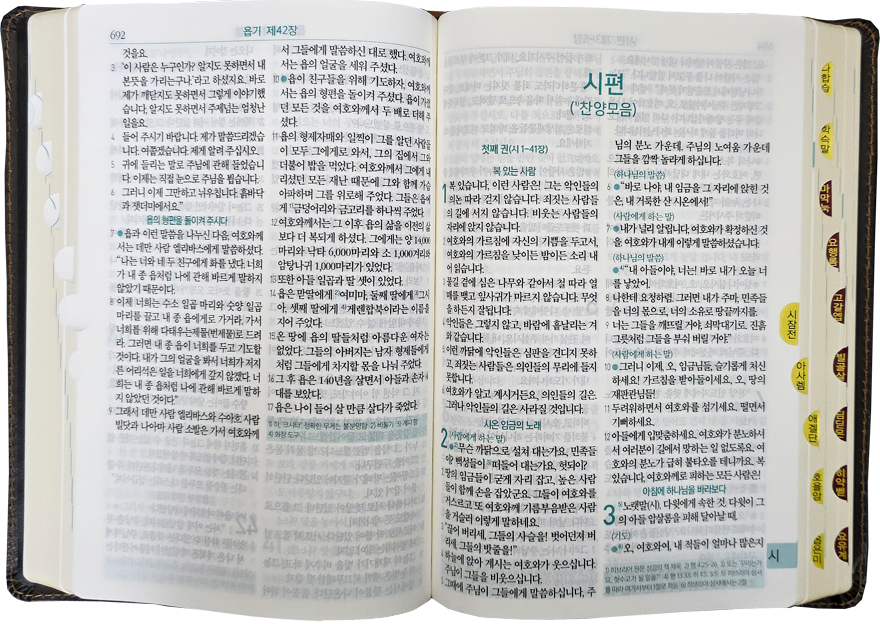 692
욥기 제42장
것을요.
3 “이 사람은 누구인가? 알지도 못하면서 내
본뜻을 가리는구나.’라고 하셨지요. 바로
제가 깨닫지도 못하면서 그렇게 이야기했
습니다. 알지도 못하면서 주께는 엄청난
일을요.
4 들어 주시기 바랍니다. 제가 말씀드리겠습
니다. 여쭙겠습니다. 제게 알려 주십시오.
5 귀에 들리는 말로 주님에 관해 들었습니
다. 이제는 직접 눈으로 주님을 뵙습니다.
6 그러니 이제 그만하고 뉘우칩니다. 흙바닥
과 잿더미에서요.”
욥의 형편을 돌이켜 주시다
7 욥과 이런 말씀을 나누신 다음, 여호와께
서는 데만 사람 엘리바스에게 말씀하셨다.
“나는 너와 네 두 친구에게 화를 냈다. 너희
가 내 종 욥처럼 나에 관해 바르게 말하지
않았기 때문이다.
8 이제 너희는 수소 일곱 마리와 숫양 일곱
마리를 끌고 내 종 욥에게로 가거라. 가서
너희를 위해 다태우는제물(번제물)로 드려
라. 그러면 내 종 욥이 너희를 두고 기도할
것이다. 내가 그의 얼굴을 봐서 너희가 저지
른 어리석은 일을 너희에게 갚지 않겠다. 너
희는 내 종 욥처럼 나에 관해 바르게 말하
지 않았던 것이다.”
9 그래서 데만 사람 엘리바스와 수아 사람
빌닷과 나아마 사람 소발은 가서 여호와께
서 그들에게 말씀하신 대로 했다. 여호와께
서는 욥의 얼굴을 세워 주셨다.
10 욥이 친구들을 위해 기도하자, 여호와께
서는 욥의 형편을 돌이켜 주셨다. 욥이 가졌
던 모든 것을 여호와께서 두 배로 더해 주
셨다.
11 욥의 형제자매와 일찍이 그를 알던 사람들
이 모두 그에게로 와서, 그의 집에서 그와
더불어 밥을 먹었다. 여호와께서 그에게 내
리셨던 모든 재난 때문에 그와 함께 가슴
아파하며 그를 위로해 주었다. 그들은 욥에
게 금덩어리와 금고리를 하나씩 주었다.
12 여호와께서는 그 이후 욥의 삶을 이전의 삶
보다 더 복되게 하셨다. 그에게는 양 14,000
마리와 낙타 6,000마리와 소 1,000겨리와
암탕나귀 1,000마리가 있었다.
13 또한 아들 일곱과 딸 셋이 있었다.
14 욥은 맏딸에게 여미마, 둘째 딸에게 그시
아, 셋째 딸에게 게렌합북이라는 이름을
지어 주었다.
15 온 땅에 욥의 딸들처럼 아름다운 여자는
없었다. 그들의 아버지는 남자 형제들에게
처럼 그들에게 차지할 몫을 나눠 주었다.
16 그 후 욥은 140년을 살면서 아들과 손자 4
대를 보았다.
17 욥은 나이 들어 살 만큼 살다가 죽었다.
시편
(찬양모음)
첫째 권(시 1-41장)
복 있는 사람
1 복 있습니다. 이런 사람은! 그는 악인들의
꾀는 따라 걷지 않습니다. 죄짓는 사람들
의 길에 서지 않습니다. 비웃는 사람들의
자리에 앉지 않습니다.
2 여호와의 가르침에 자신의 기쁨을 두고서,
여호와의 가르침을 낮이든 밤이든 소리 내
어 읽습니다.
3 물길 곁에 심은 나무와 같아서 철 따라 열
매를 맺고 잎사귀가 마르지 않습니다. 무엇
을 하든지 잘됩니다.
4 악인들은 그렇지 않고, 바람에 흩날리는 겨
와 같습니다.
5 이런 까닭에 악인들은 심판을 견디지 못하
고, 죄짓는 사람들은 의인들의 무리에 들지
못합니다.
6 여호와가 알고 계시거든요, 의인들의 길은.
그러나 악인들의 길은 사라질 것입니다.
시온 임금의 노래
(사람에게 하는 말)
2 무슨 까닭으로 설쳐 대는가요, 민족들
이? 백성들이 떠들어 대는가요, 헛되이?
땅의 임금들이 굳게 자리 잡고, 높은 사람
들이 함께 손을 잡았군요. 그들이 여호와를
거스르고 또 여호와께 기름부음받은 사람
을 거슬러 이렇게 말하네요.
“끊어 버리세, 그들의 사슬을! 벗어던져 버
리세, 그들의 밧줄을!”
하늘에 앉아 계시는 여호와가 웃으십니다.
주님이 그들을 비웃으십니다.
그때에 주님이 그들에게 말씀하십니다, 주
님의 분노 가운데. 주님의 노여움 가운데
그들을 깜짝 놀라게 하십니다.
(하나님의 말씀)
6 “바로 나야, 내 임금을 그 자리에 앉힌 것
은, 내 거룩한 산 시온에서!”
(사람에게 하는 말)
7 내가 널리 알립니다, 여호와가 확정하신 것
을. 여호와가 내게 이렇게 말씀하셨습니다.
(하나님의 말씀)
“내 아들이야, 너는! 바로 내가 오늘 너
를 낳았어.
8 나한테 요청하렴. 그러면 내가 주마, 민족들
을 너의 몫으로, 너의 소유로 땅끝까지를.
9 너는 그들을 깨뜨릴 거야, 쇠막대기로. 진흙
그릇처럼 그들을 부숴 버릴 거야.”
(사람에게 하는 말)
10 그러니 이제, 오, 임금님들, 슬기롭게 처신
하세요! 가르침을 받아들이세요, 오, 땅의
재판관님들!
11 두려워하면서 여호와를 섬기세요. 떨면서
기뻐하세요.
12 아들에게 입맞춤하세요. 여호와가 분노하셔
서 여러분이 길에서 망하는 일 없도록요. 여
호와의 분노가 금히 불타오를 테니까요. 복
있습니다, 여호와께로 피하는 모든 사람은!
아침에 하나님을 바라보다
3 노랫말(시). 다윗에게 속한 것. 다윗이 그
의 아들 압살롬을 피해 달아날 때.
(기도)
오, 여호와여, 내 적들이 얼마나 많은지
시
나합습
학슥말
마막눅
요행롬
고갈엡
빌골살
시잠전
아사렘
애겔단
호욜암